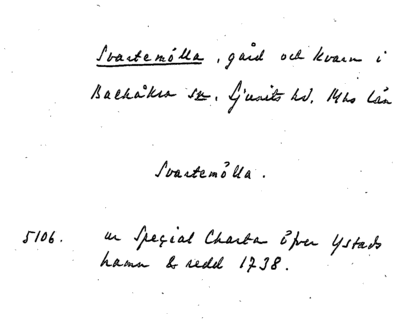 Svartemölla, gård och kvarn i
Backåkra sn. Ljunits hd. Mho län
Svartemölla.
5106. ur Special Charta öfver Ystads
hamn & redd 1738.